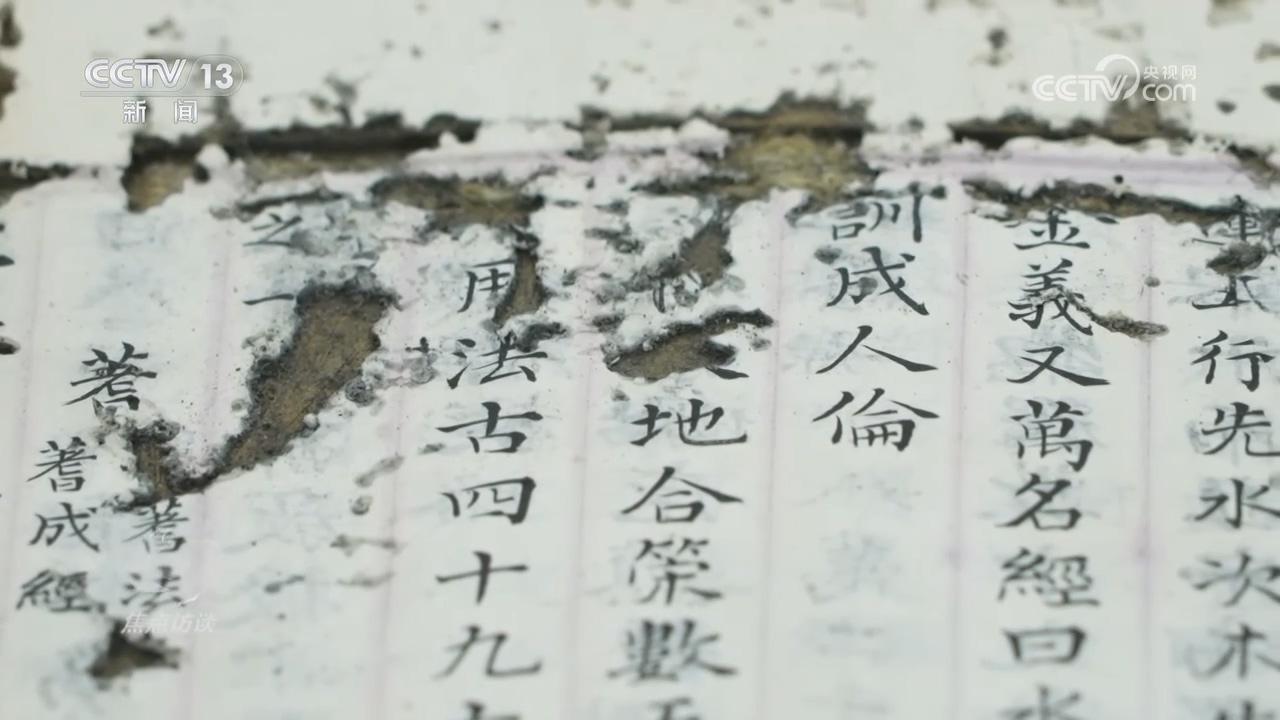 CCTV 13
新闻
央视网
CCTV.com
行先水次木
金義又萬名經曰水
訓成人倫
地合策數五
用法古四十九
之一
蓍
蓍法
蓍成經
焦点访谈